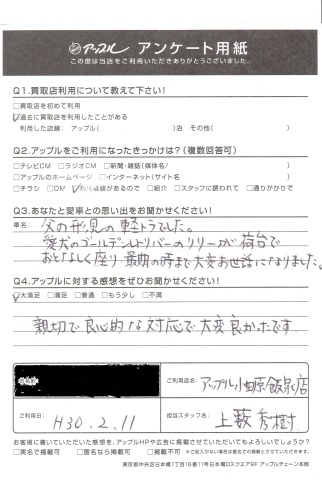 アップル アンケート用紙
この度は当店をご利用いただきありがとうございました。
Q1.買取店利用について教えて下さい!
□買取店を初めて利用
☑過去に買取店を利用したことがある
利用した店舗: アップル( )店 その他( )
Q2.アップルをご利用になったきっかけは?(複数回答可)
□テレビCM □ラジオCM □新聞・雑誌(媒体名/ )
□アップルのホームページ □インターネット(サイト名 )
□チラシ □DM ☑ があるので □紹介 □スタッフに誘われて □通りがかりで
Q3.あなたと愛車との思い出をお聞かせください!
車名: 父の形見の軽トラでした。
愛犬のゴールデンレトリバーのリリーが荷台で
おとなしく座り最期の時まで大変お世話になりました。
Q4.アップルに対する感想をぜひお聞かせください!
☑大満足 □満足 □普通 □もう少し □不満
親切で良心的な対応で大変良かったです
ご利用店名: アップル小田原飯泉店
ご利用日: H30.2.11
担当スタッフ名: 上薮秀樹
お客様に書いていただいた感想を、アップルHPや広告に掲載させていただいてもよろしいでしょうか?
□実名で掲載可 □匿名なら掲載可 □掲載不可 ※ご記入がない場合は匿名での掲載とさせていただきます。
東京都中央区日本橋1丁目16番11号日本橋Dスクエア9F アップルチェーン本部